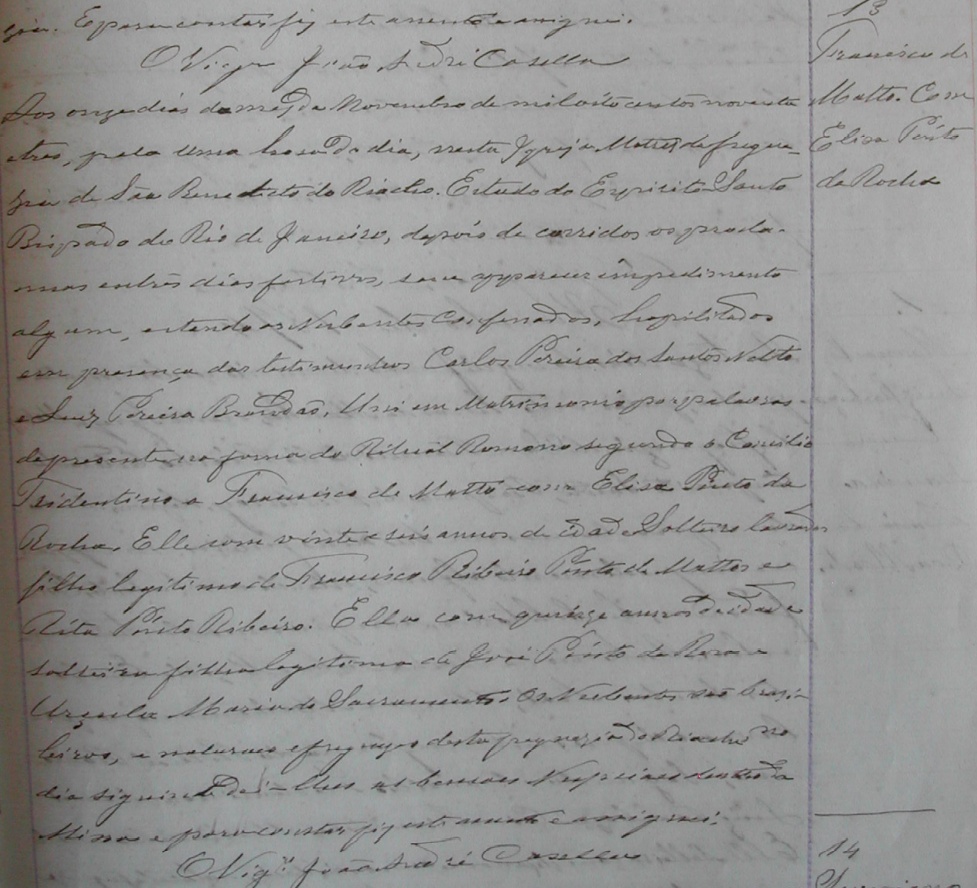 zia. E para constar fiz este assento e assignei.
O Vigrº João André Casella
13
Francisco de
Matto. Com
Elisa Pinto
da Rocha
Aos onze dias do mez de Novembro de mil oito centos noventa
e tres, pela uma hora do dia, nesta Igreja Matriz da fregue-
zia de São Benedicto do Riacho. Estado do Espirito Santo
Bispado do Rio de Janeiro, depois de corridos os procla-
mas em tres dias festivos, sem apparecer impedimento
algum, estando os Nubentes Confessados, habilitados
em presença das testimunhas Carlos Pereira dos Santos Netto
e Luiz Pereira Brandão, Uni em Matrimonio por palavras
de presente na forma do Ritual Romano segundo o Concilio
Tridentino a Francisco de Matto com Elisa Pinto da
Rocha. Elle com vinte e seis annos de idade Solteiro lavrador
filho legitimo de Francisco Ribeiro Pinto de Mattos e
Rita Pinto Ribeiro. Ella com quinze annos de idade
solteira filha legitima de José Pinto da Rosa e
Ursula Maria do Sacramento. Os Nubentes são brazi-
leiros, e naturaes e freguezes desta freguezia do Riacho no
dia siguinte dei-lhes as bencoes Nupciaes dentro da
Missa e para constar fiz este assento e assignei.
O Vigrº João André Casella
14